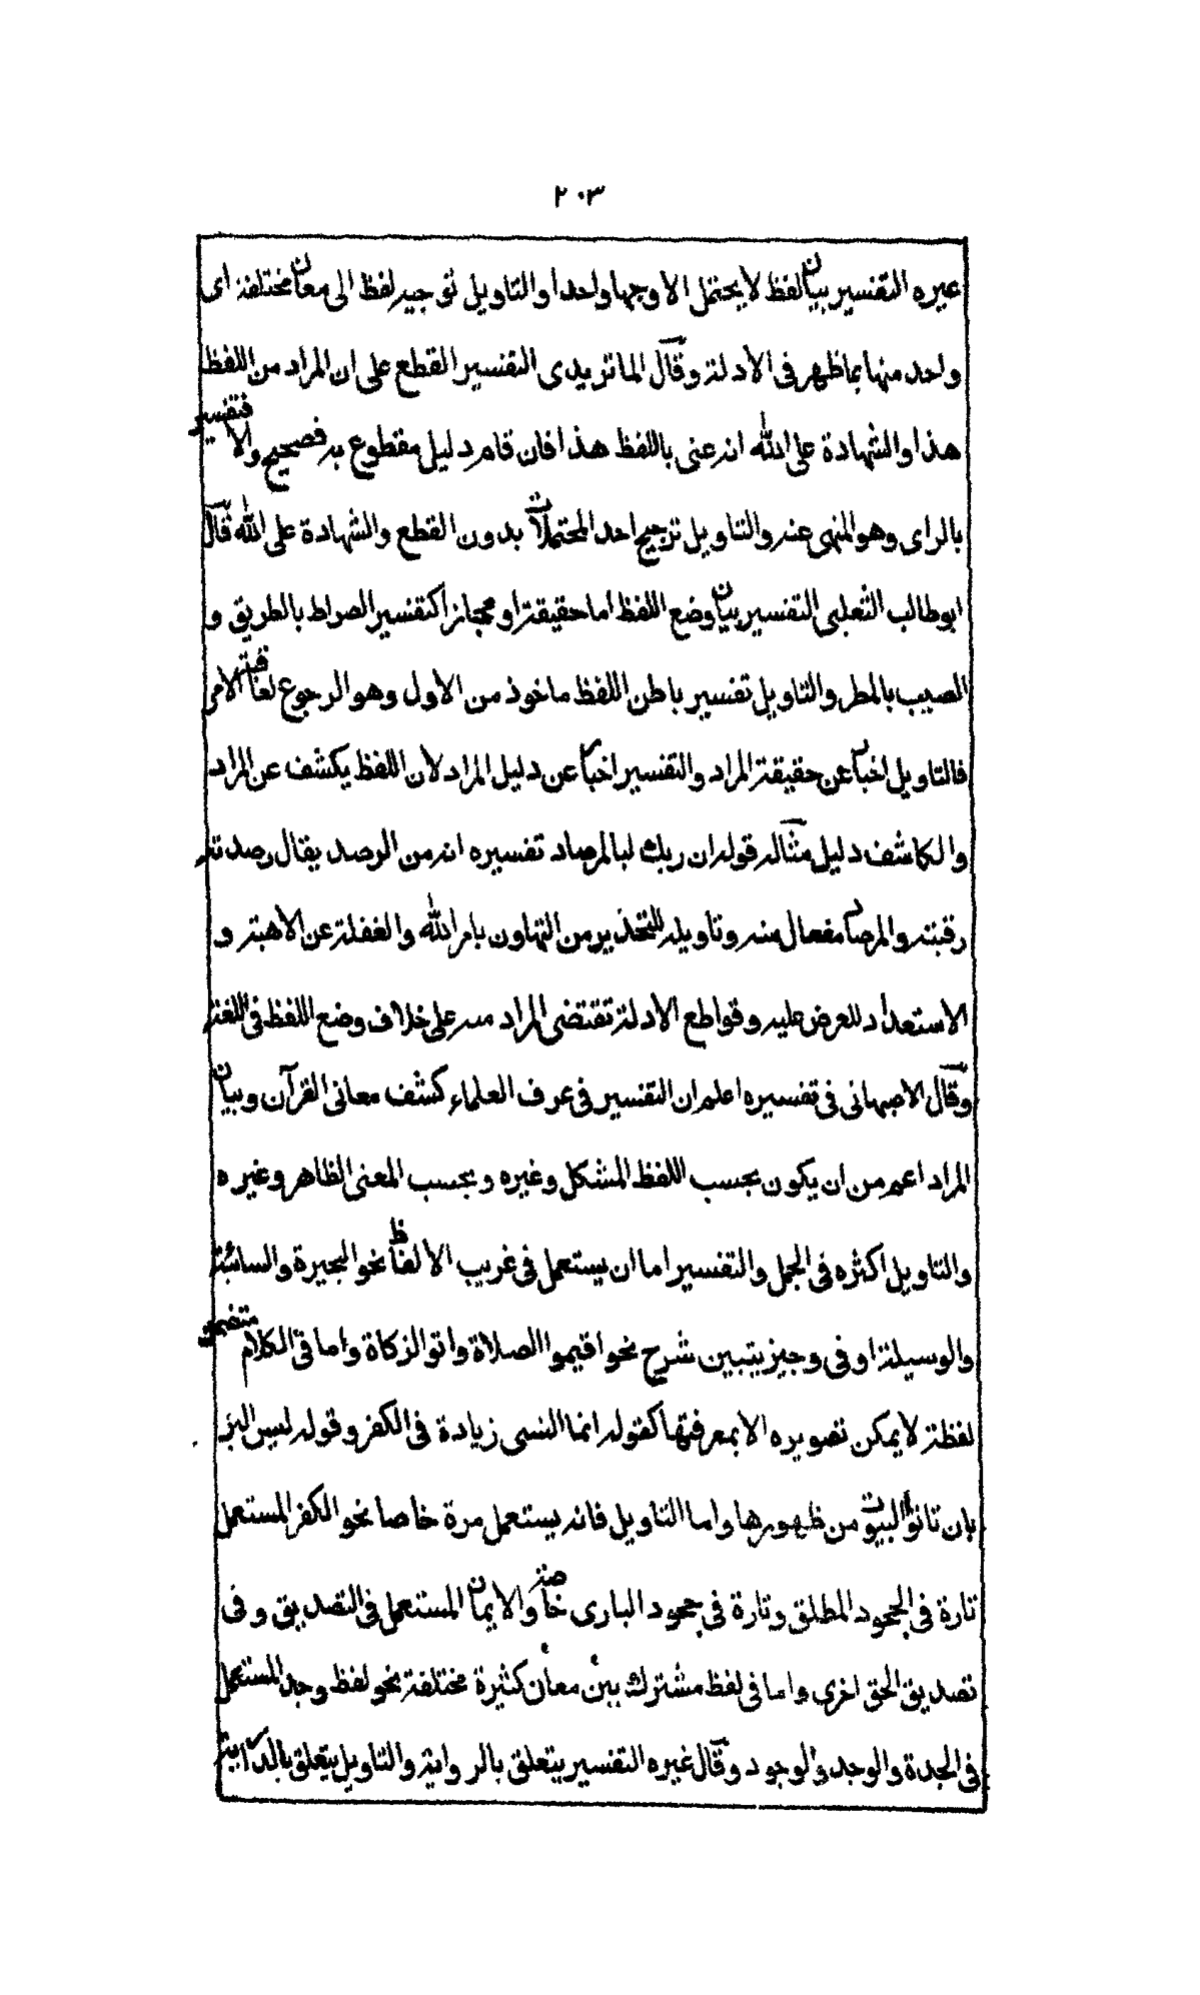 ٢٠٣
غيره التفسير بيان لفظ لا يحتمل الا وجها واحدا والتاويل توجيه لفظ الى معان مختلفة اى
واحد منها بما ظهر فى الادلة وقال الماتريدى التفسير القطع على ان المراد من اللفظ
هذا والشهادة على الله انه عنى باللفظ هذا فان قام دليل مقطوع به فصحيح والا فتفسير
بالراى وهو المنهى عنه والتاويل ترجيح احد المحتملات بدون القطع والشهادة على الله قال
ابو طالب الثعلبى التفسير بيان وضع اللفظ اما حقيقة او مجازا كتفسير الصراط بالطريق و
الصيب بالمطر والتاويل تفسير باطن اللفظ ماخوذ من الاول وهو الرجوع لعاقبة الامر
فالتاويل اخبار عن حقيقة المراد والتفسير اخبار عن دليل المراد لان اللفظ يكشف عن المراد
والكاشف دليل مثاله قوله ان ربك لبالمرصاد تفسيره انه من الرصد يقال رصدته
رقبته والمرصاد مفعال منه وتاويله التحذير من التهاون بامر الله والغفلة عن الاهبة و
الاستعداد للعرض عليه وقواطع الادلة تقتضى المراد منه على خلاف وضع اللفظ فى اللغة
وقال الاصبهانى فى تفسيره اعلم ان التفسير فى عرف العلماء كشف معانى القرآن وبيان
المراد اعم من ان يكون بحسب اللفظ المشكل وغيره وبحسب المعنى الظاهر وغيره
والتاويل اكثره فى الجمل والتفسير اما ان يستعمل فى غريب الالفاظ نحو البحيرة والسائبة
والوسيلة او فى وجيز يتبين شرح نحو اقيموا الصلاة واتو الزكاة واما فى الكلام متضمن
لفظة لا يمكن تصويره الا بمعرفتها كقوله انما النسى زيادة فى الكفر وقوله ليس البر
بان تاتوا البيوت من ظهورها واما التاويل فانه يستعمل مرة خاصا نحو الكفر المستعمل
تارة فى الجحود المطلق وتارة فى جحود البارى خاصة والايمان المستعمل فى التصديق وفى
تصديق الحق اخرى واما فى لفظ مشترك بين معان كثيرة مختلفة نحو لفظ وجد المستعمل
فى الجدة والوجد والوجود وقال غيره التفسير يتعلق بالرواية والتاويل يتعلق بالدراية